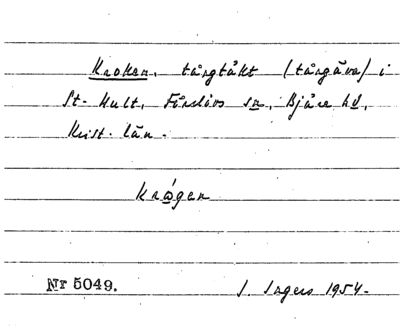 Kroken, tårgtäkt (tårgäva) i
St. Hult, Förslövs sn, Bjäre hd,
Krist. län.
Krågen
Nr 5049. J. Ingers 1954.